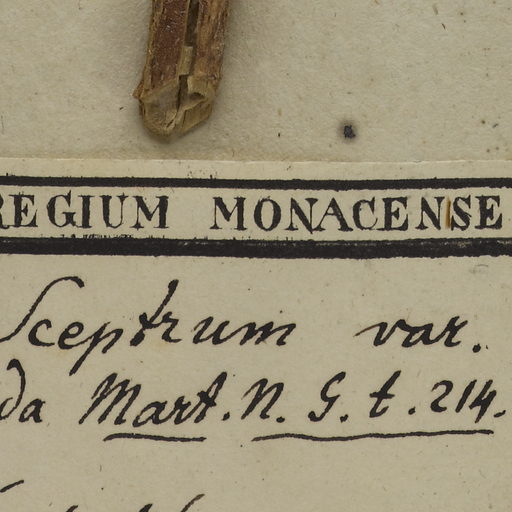 REGIUM MONACENSE
Sceptrum var.
da Mart. N. G. t. 214.